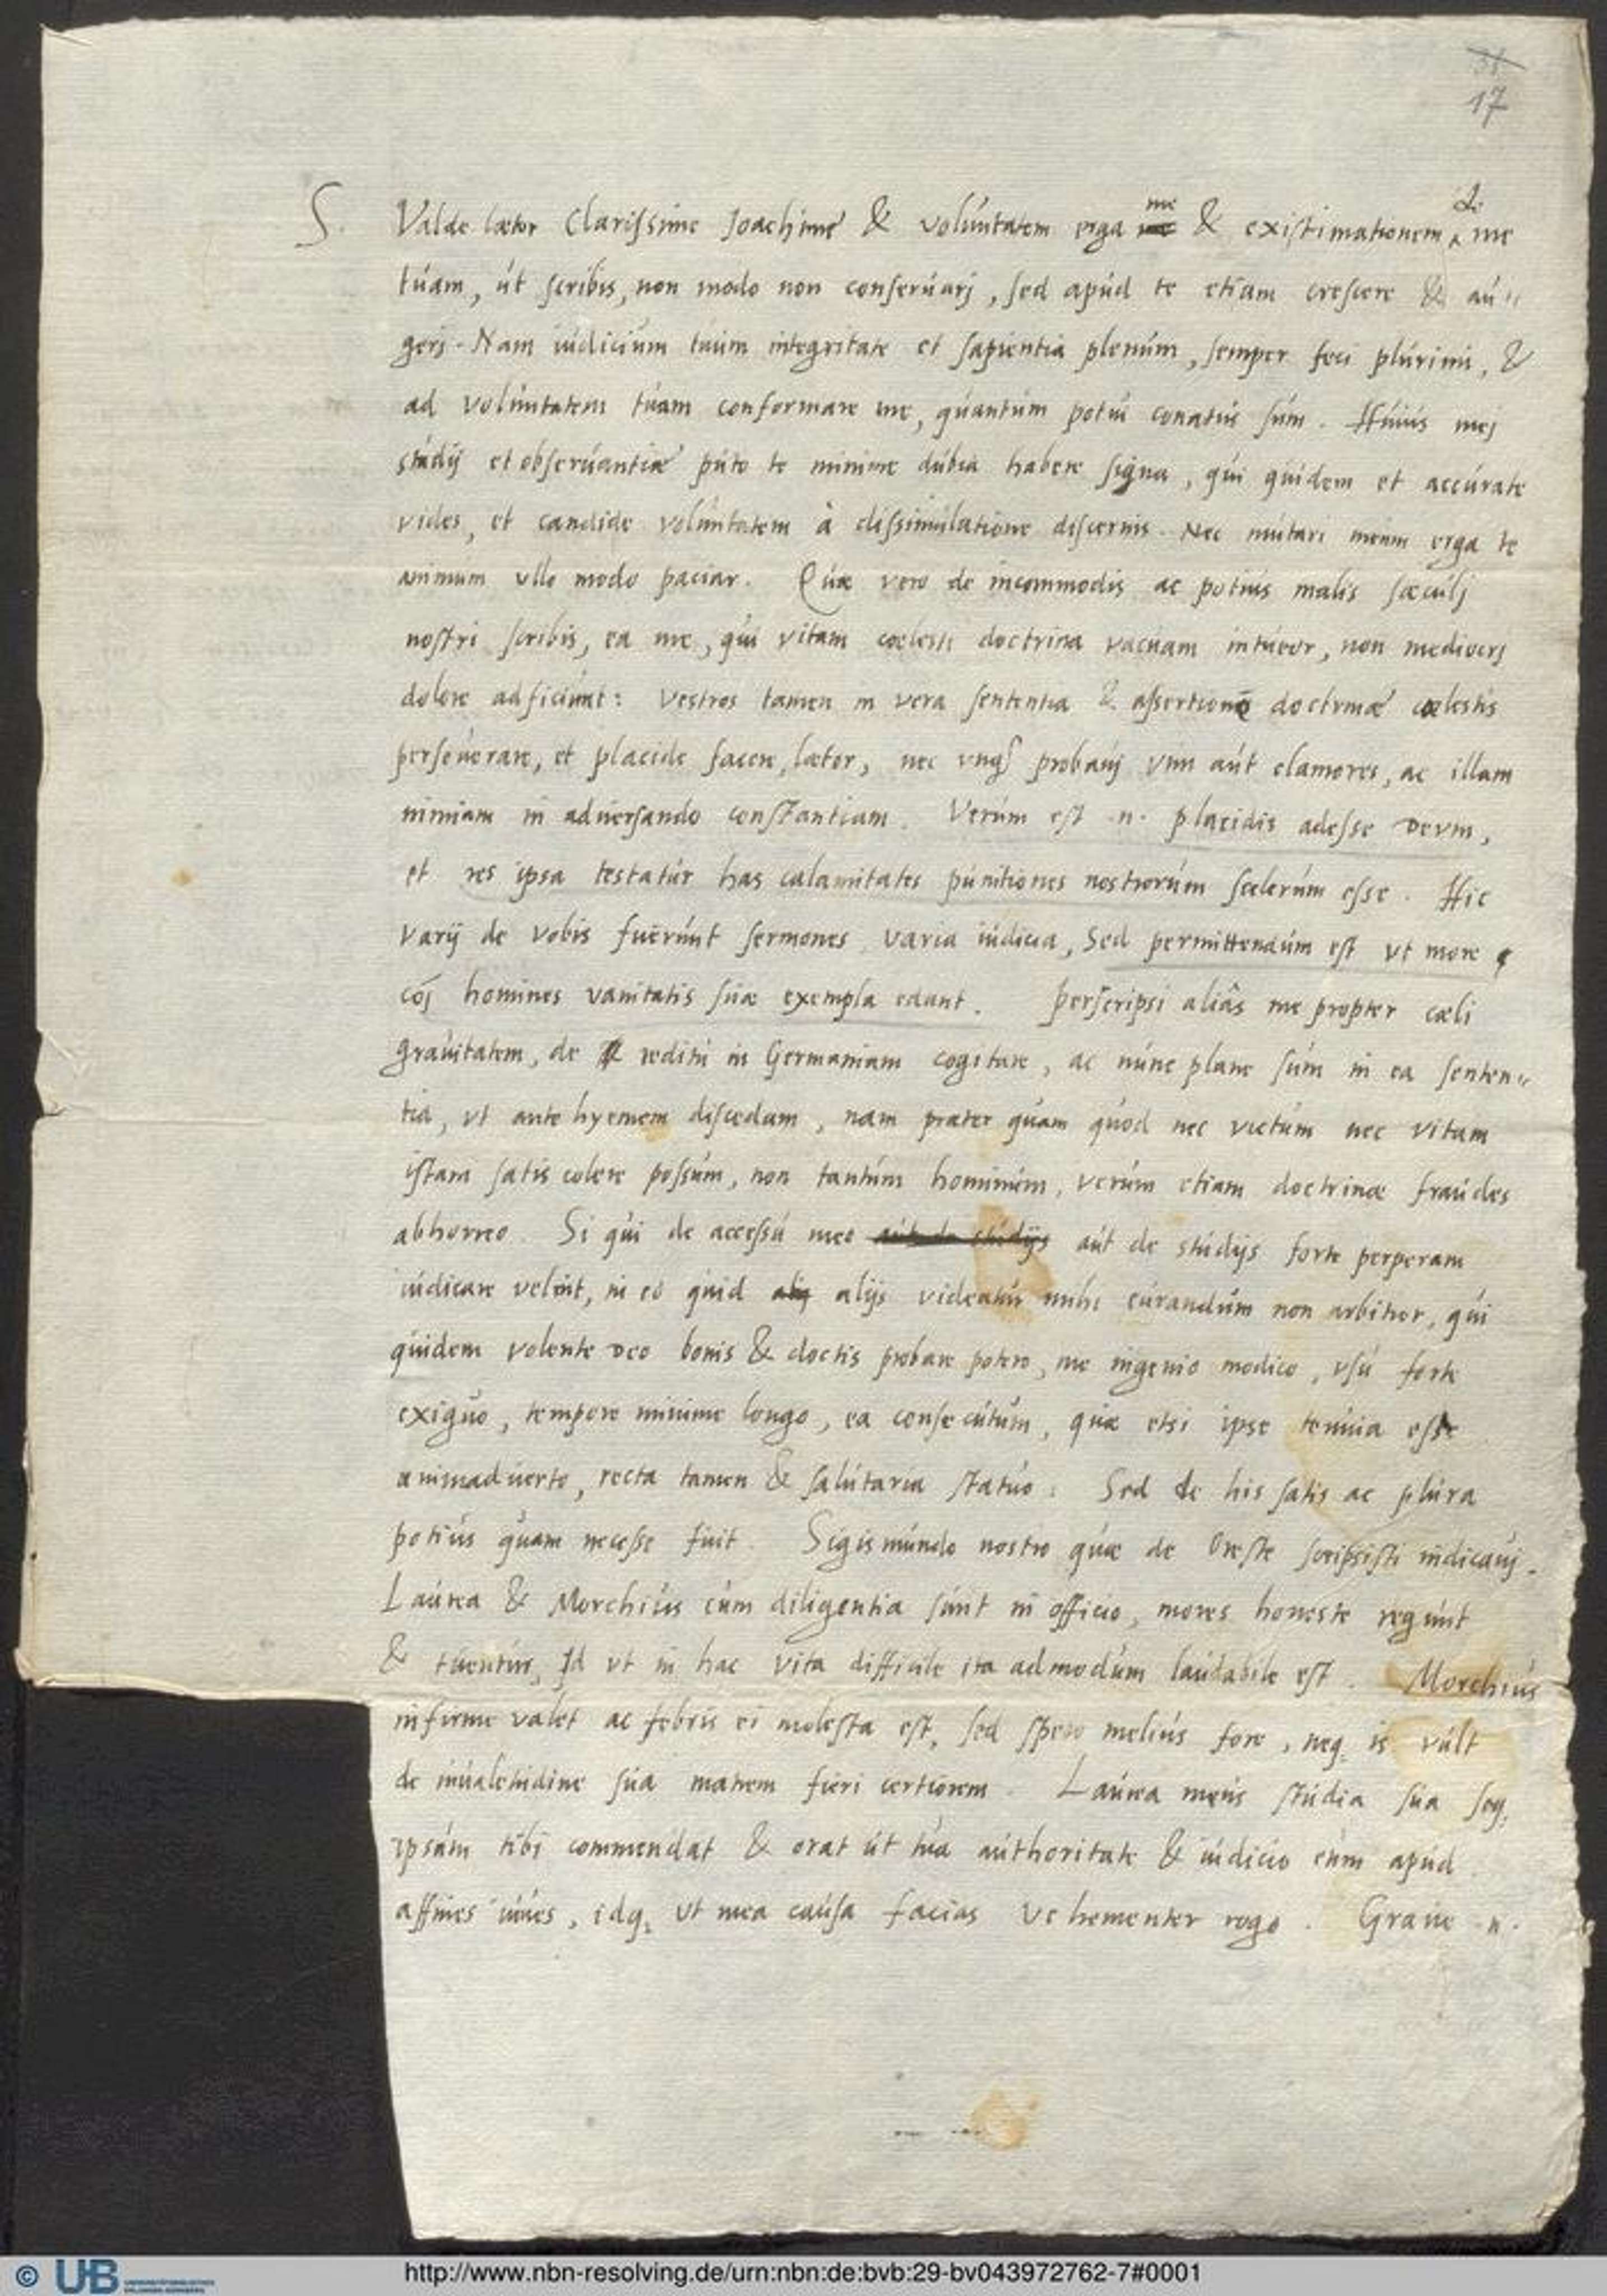 31
17
S. Valde lætor Clarissime Joachime & voluntatem erga me & existimationem de me
tuam, ut scribis, non modo non conseruarj, sed apud te etiam crescere & au=
gerj. Nam iudicium tuum integritate et sapientia plenum, semper feci plurimi, &
ad voluntatem tuam conformare me, quantum potui conatus sum. Huius mej
studij et obseruantiæ puto te minime dubia habere signa, qui quidem et accurate
vides, et candide voluntatem à dissimulatione discernis. Nec mutari meum erga te
animum vllo modo paciar. Quæ vero de incommodis ac potius malis sæculj
nostri scribis, ea me, qui vitam cœlesti doctrina vacuam intueor, non mediocrj
dolore adficiunt: Vestros tamen in vera sententia & assertione doctrinæ cœlestis
perseuerare, et placide facere, lætor, nec vnq probauj vim aut clamores, ac illam
nimiam in aduersando constantiam. Verum est .n. placidis adesse Deum,
et res ipsa testatur has calamitates punitiones nostrorum scelerum esse. Hic
Varij de vobis fuerunt sermones varia iudicia, Sed permittendum est vt more
homines vanitatis suæ exempla edant. Perscripsi aliâs me propter cæli
grauitatem, de reditu in Germaniam cogitare, ac nunc plane sum in ea senten=
tia, vt ante hyemem discedam, nam præter quam quod nec victum nec vitam
istam satis colere possum, non tantum hominum, verum etiam doctrinæ fraudes
abhorreo. Si qui de accessu meo aut de studijs aut de studijs forte perperam
iudicare velint, in eo quid alijs videatur mihi curandum non arbitror, qui
quidem volente Deo bonis & doctis probare potero, me ingenio modico, vsu forte
exiguo, tempore minime longo, ea consecutum, quæ etsi ipse tenuia esse
animaduerto, recta tamen & salutaria statuo: Sed de his satis ac plura
potius quam necesse fuit. Sigismundo nostro quæ de Oreste scripsisti indicauj.
Laurea & Morchius cum diligentia sunt in officio, mores honeste regunt
& tuentur, Id vt in hac vita difficile ita admodum laudabile est. Morchius
infirme valet ac febris ei molesta est, sed spero melius fore, neq; is vult
de inualetudine sua matrem fieri certiorem. Laurea meus studia sua seq;
ipsum tibi commendat & orat ut tua authoritate & iudicio eum apud
affines iuues, idq; vt mea causa facias vehementer rogo. Graue .n.
© UB
http://www.nbn-resolving.de/urn:nbn:de:bvb:29-bv043972762-7#0001